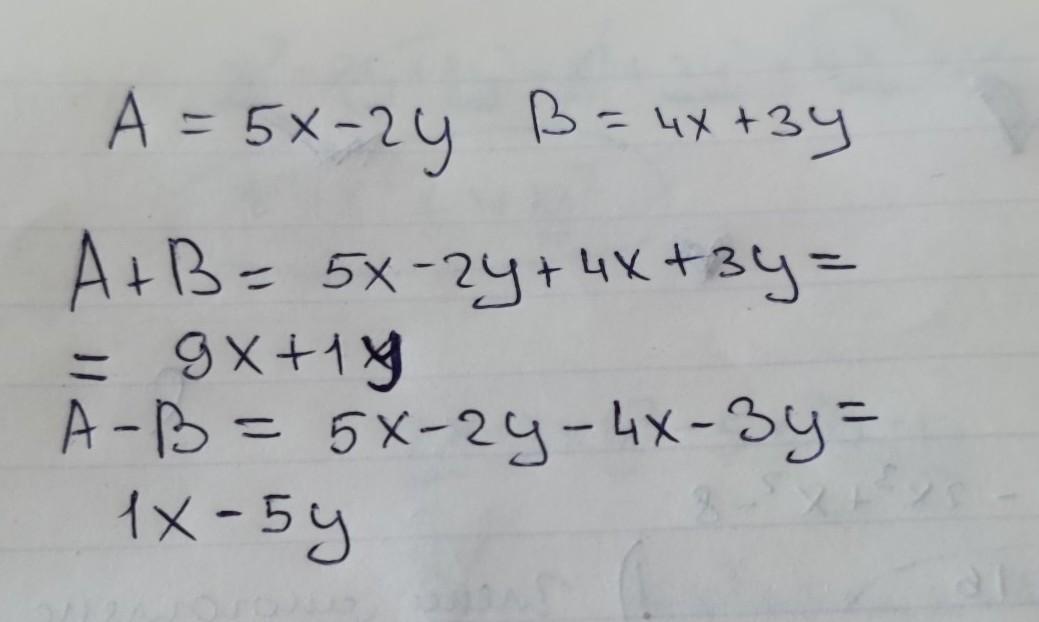 A = 5x-2y B = 4x+3y
A+B = 5x-2y+4x+3y=
= 9x+1y
A-B = 5x-2y-4x-3y=
1x-5y